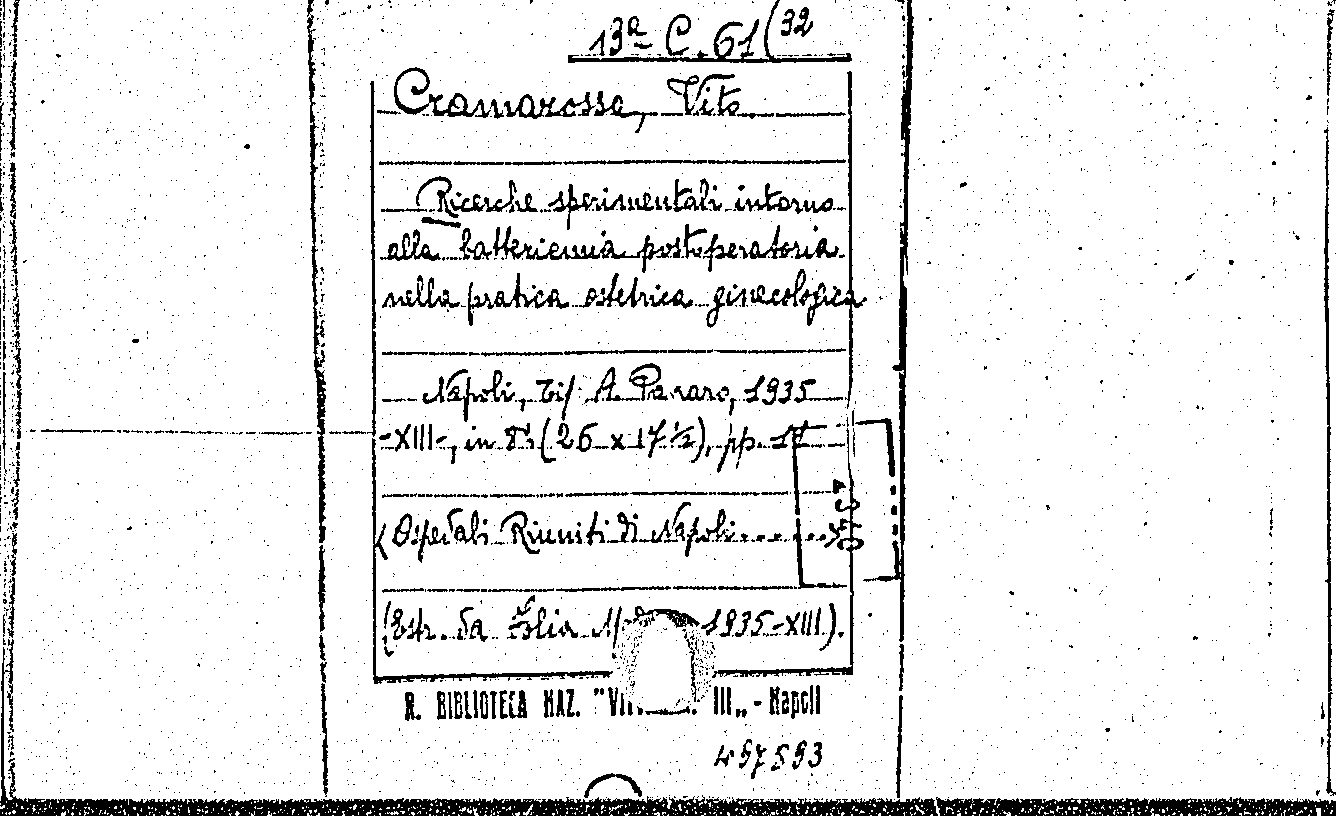 13ª C. 61(32
Cramarossa, Vito
Ricerche sperimentali intorno
alla batteriemia postoperatoria
nella pratica ostetrica ginecologica
Napoli, Tip. A. Panaro, 1935
-XIII-, in 8º (26 x 17 ½), pp. 11
(Ospedali Riuniti di Napoli......)
(Estr. da Folia 1935-XIII).
R. BIBLIOTECA NAZ. " III„ - Napoli